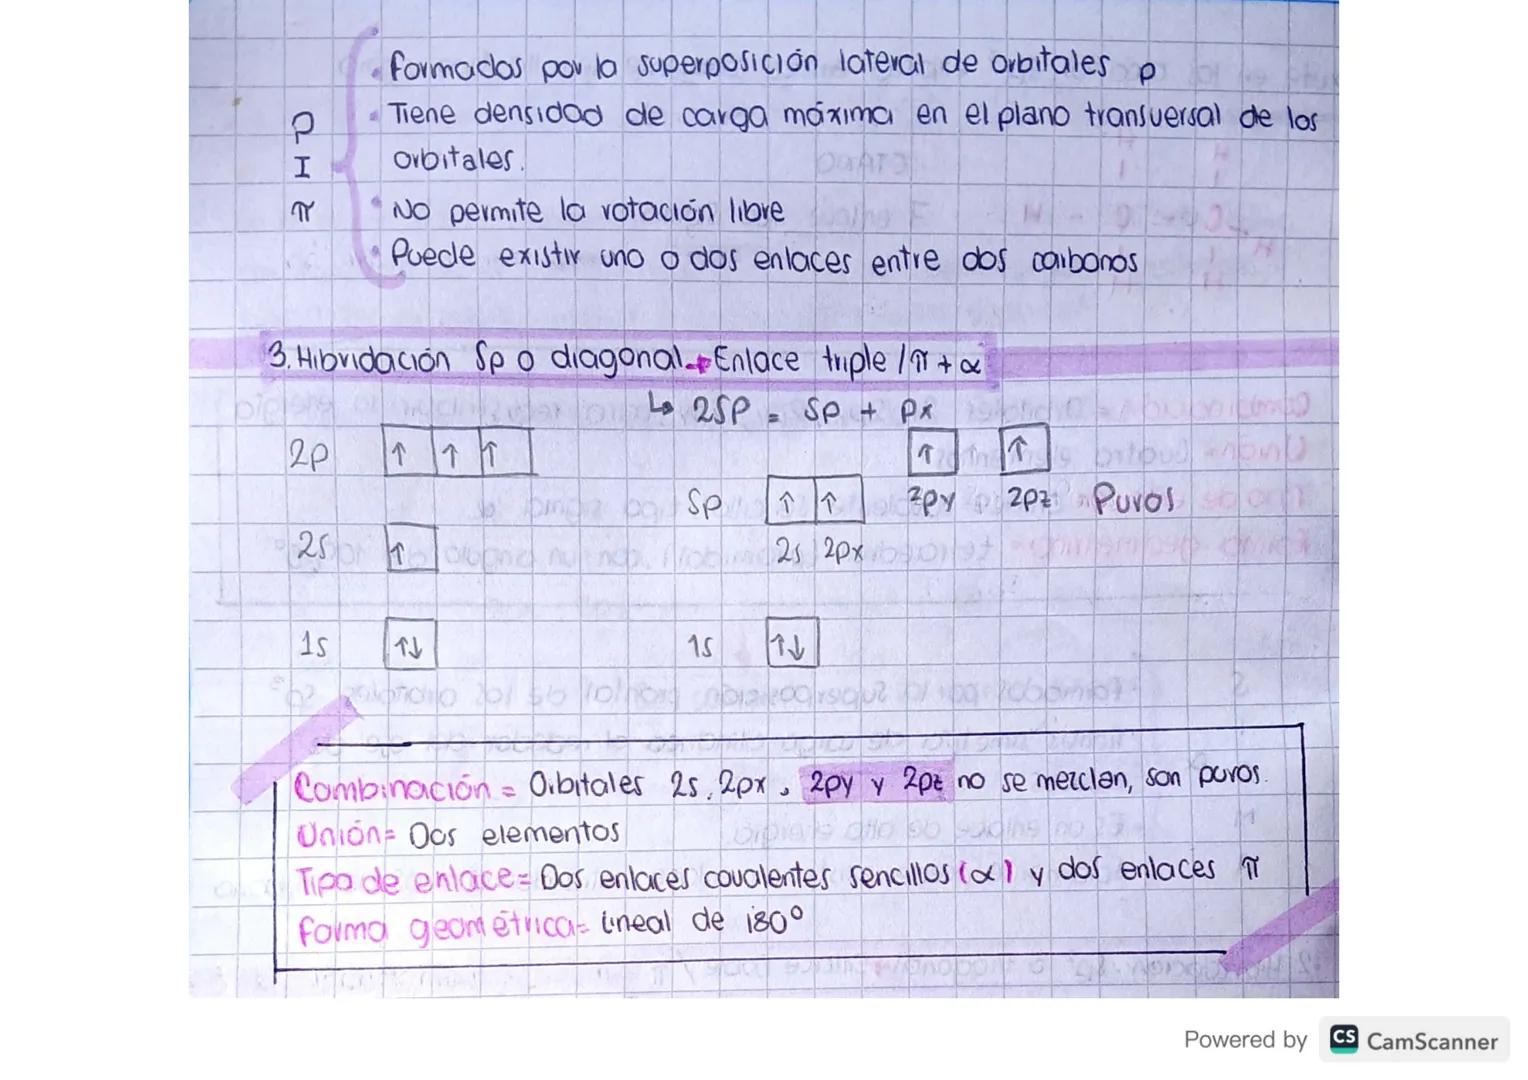 Formados por la superposición lateral de orbitales p
Tiene densidad de carga máxima en el plano transversal de los
orbitales.
P
I
π
No permite la rotación libre
Puede existir uno o dos enlaces entre dos carbonos
3. Hibridación Sp o diagonal → Enlace triple / π + α
↳ 2SP = SP + Px
2p ↑ ↑ ↑
↑ ↑
Sp ↑ ↑ 2py 2pz Puros
2s ↑ 2s 2px
1s ↑↓ 1s ↑↓
Combinación = Orbitales 2s, 2px, 2py y 2pz no se mezclan, son puros.
Unión = Dos elementos
Tipo de enlace = Dos enlaces covalentes sencillos (α) y dos enlaces π
Forma geométrica = lineal de 180°
Powered by CS CamScanner